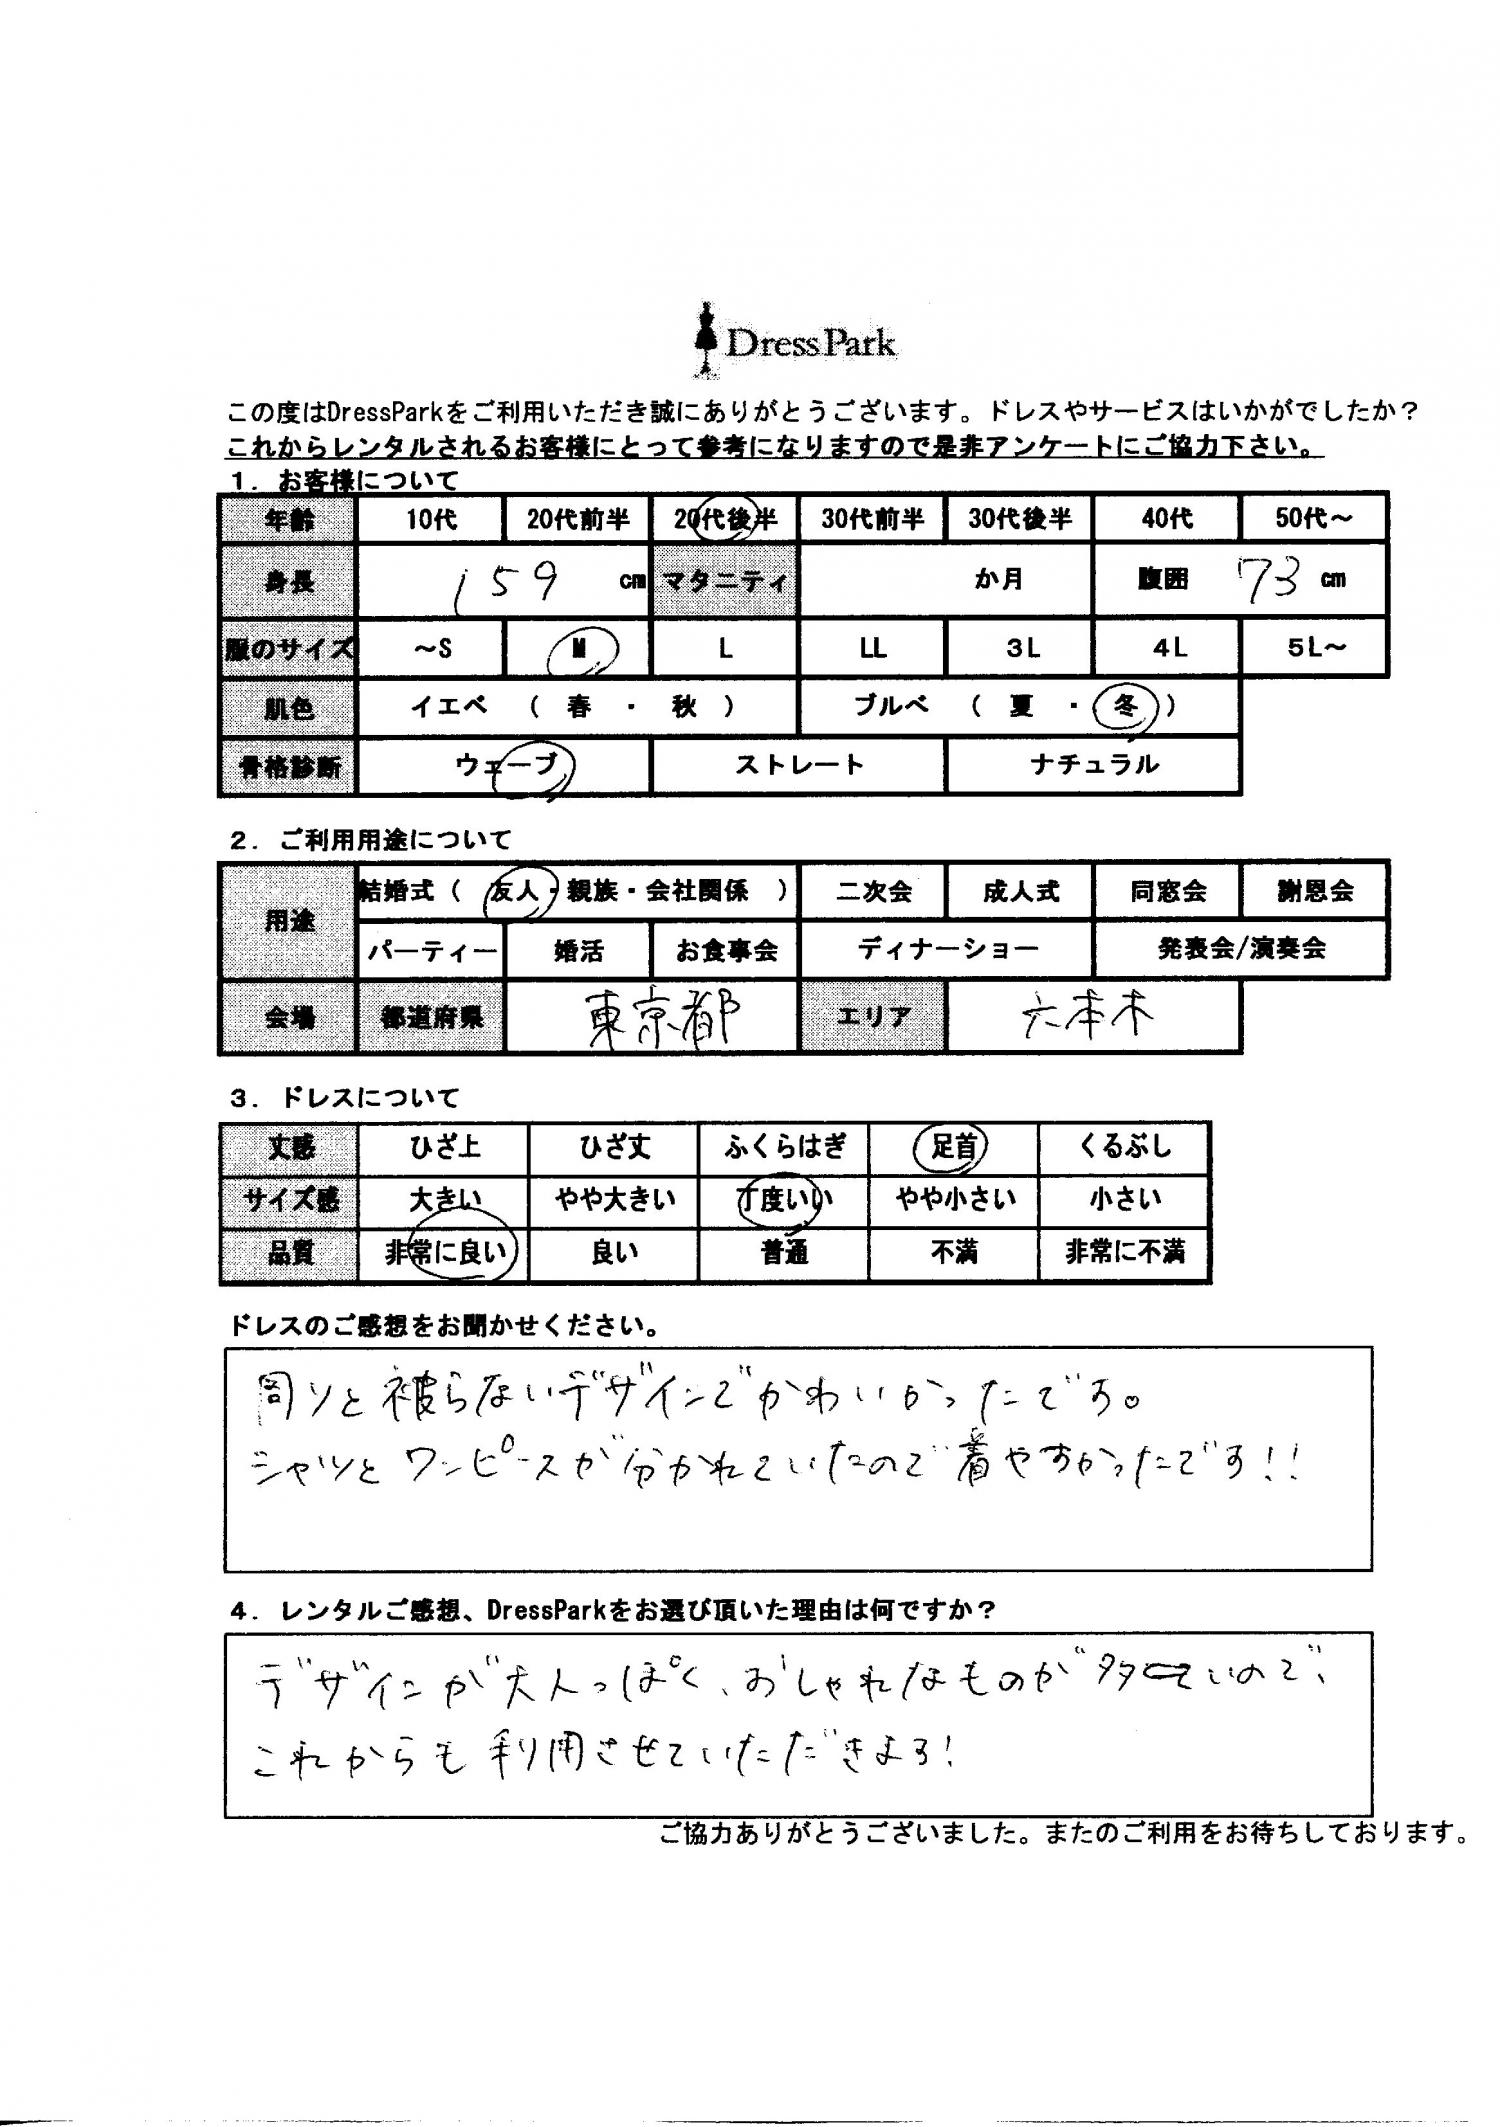 DressPark
この度はDressParkをご利用いただき誠にありがとうございます。ドレスやサービスはいかがでしたか？
これからレンタルされるお客様にとって参考になりますので是非アンケートにご協力下さい。
1. お客様について
年齢 10代 20代前半 20代後半 30代前半 30代後半 40代 50代～
身長 159 cm マタニティ か月 腹囲 73 cm
服のサイズ ～S M L LL 3L 4L 5L～
肌色 イエベ （ 春 ・ 秋 ） ブルベ （ 夏 ・ 冬 ）
骨格診断 ウェーブ ストレート ナチュラル
2. ご利用用途について
用途 結婚式（ 友人・親族・会社関係 ） 二次会 成人式 同窓会 謝恩会
パーティー 婚活 お食事会 ディナーショー 発表会/演奏会
会場 都道府県 東京都 エリア 六本木
3. ドレスについて
丈感 ひざ上 ひざ丈 ふくらはぎ 足首 くるぶし
サイズ感 大きい やや大きい 丁度いい やや小さい 小さい
品質 非常に良い 良い 普通 不満 非常に不満
ドレスのご感想をお聞かせください。
周りと被らないデザインでかわいかったです。
シャツとワンピースが分かれていたので着やすかったです!!
4. レンタルご感想、DressParkをお選び頂いた理由は何ですか？
デザインが大人っぽく、おしゃれなものが多いので、
これからも利用させていただきます!
ご協力ありがとうございました。またのご利用をお待ちしております。